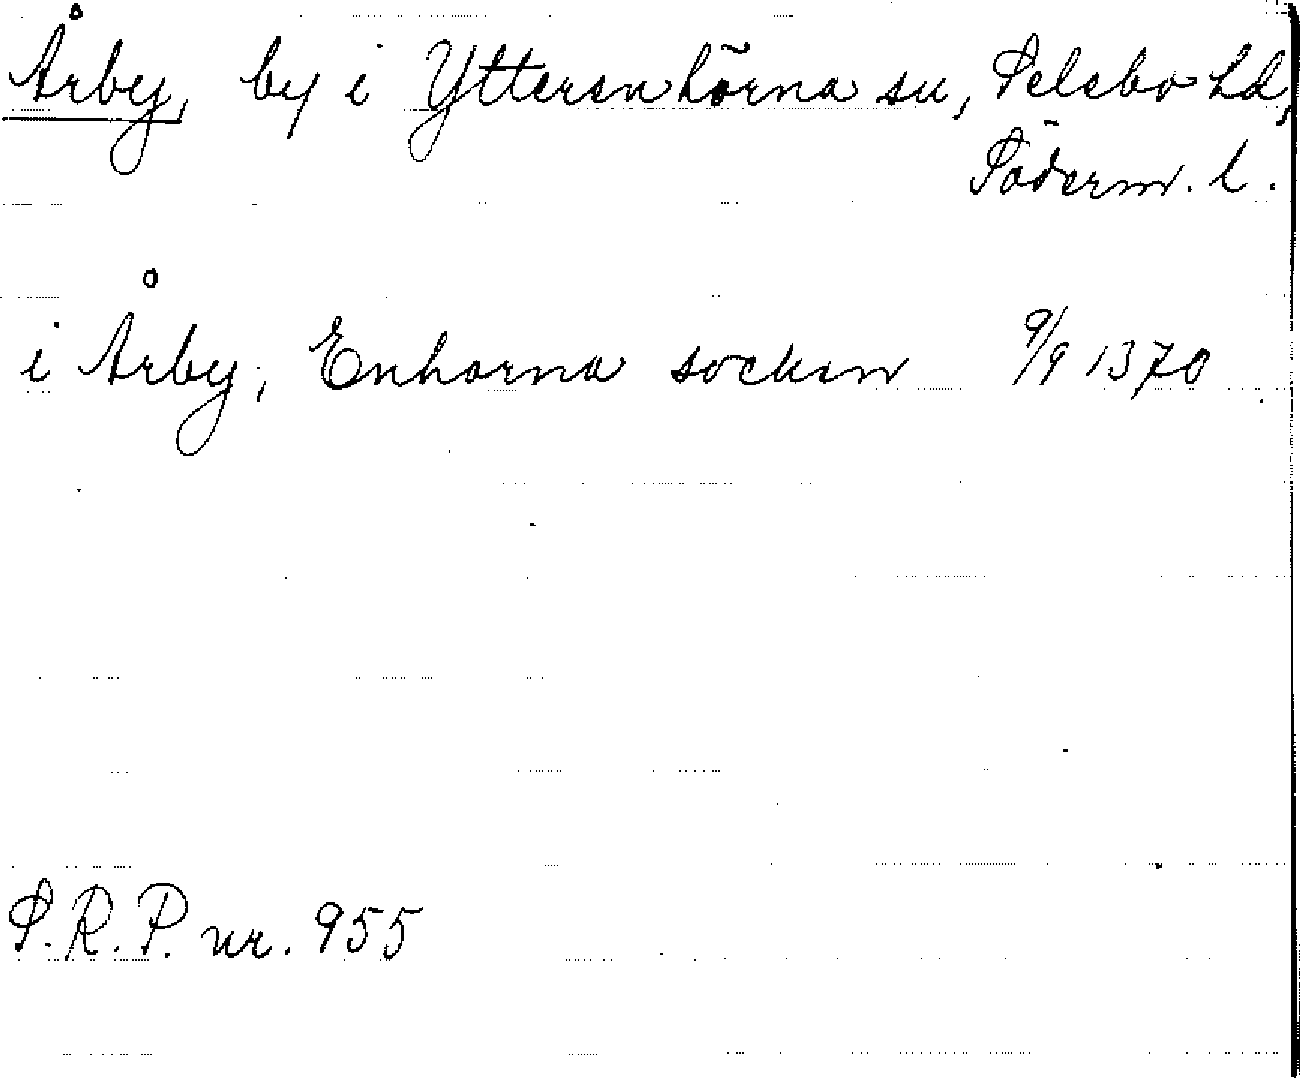 Årby, by i Ytterenhörna sn, Selebo hd,
Söderm. l.
i Årby, Enhorna socken 9/9 1370
S.R.P. nr. 955